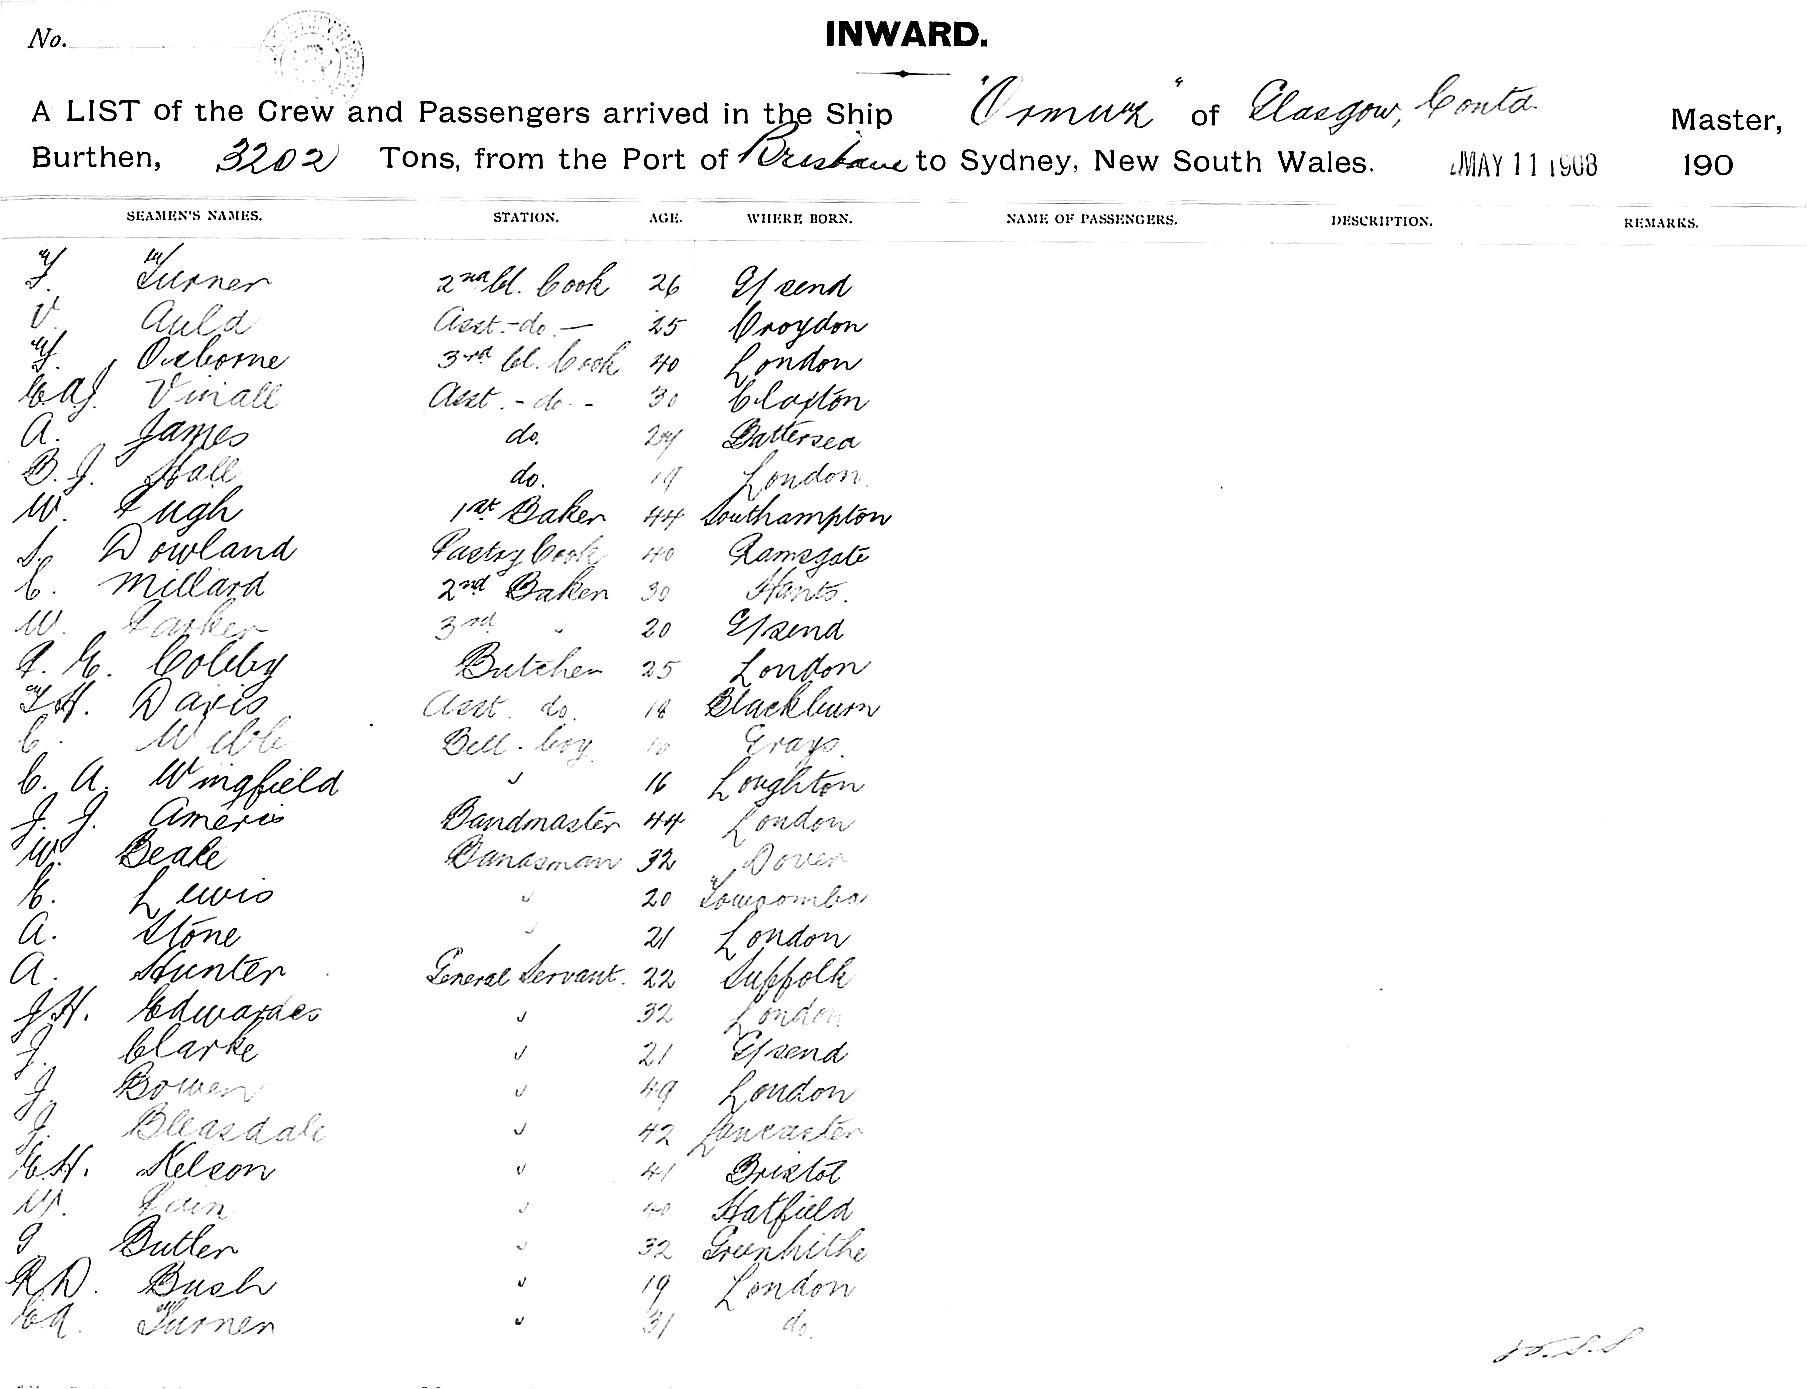 No.
INWARD.
A LIST of the Crew and Passengers arrived in the Ship "Ormuz" of Glasgow, Contd. Master,
Burthen, 3202 Tons, from the Port of Brisbane to Sydney, New South Wales. MAY 11 1908 190
SEAMEN'S NAMES. STATION. AGE. WHERE BORN. NAME OF PASSENGERS. DESCRIPTION. REMARKS.
F. Turner 2nd Cl. Cook 26 G/send
V. Auld Asst. - do - 25 Croydon
F. Osborne 3rd Cl. Cook 40 London
Vinall Asst. - do - 30 Claxton
A. James do. 24 Battersea
B. J. Hall do. 19 London
W. Pugh 1st Baker 44 Southampton
S. Dowland Pastry Cook 40 Ramsgate
C. Millard 2nd Baker 30 Hants.
W. Parker 3rd " 20 G/send
P. E. Colley Butcher 25 London
T. H. Davis Asst. do. 18 Blackburn
C. Webb Bell-boy Grays.
C. A. Wingfield " 16 Loughton
J. J. Ameris Bandmaster 44 London
W. Beale Bandsman 32 Dover
E. Lewis " 20 Toowoomba
A. Stone " 21 London
A. Hunter General Servant. 22 Suffolk
J. H. Edwardes " 32 London
J. Clarke " 21 G/send
J. Bowen " 49 London
J. Bleasdale " 42 Lancaster
E. H. Nelson " 41 Bristol
W. Pain " 40 Hatfield
G Butler " 32 Greenhithe
R. D. Bush " 19 London
Turner " 31 do.